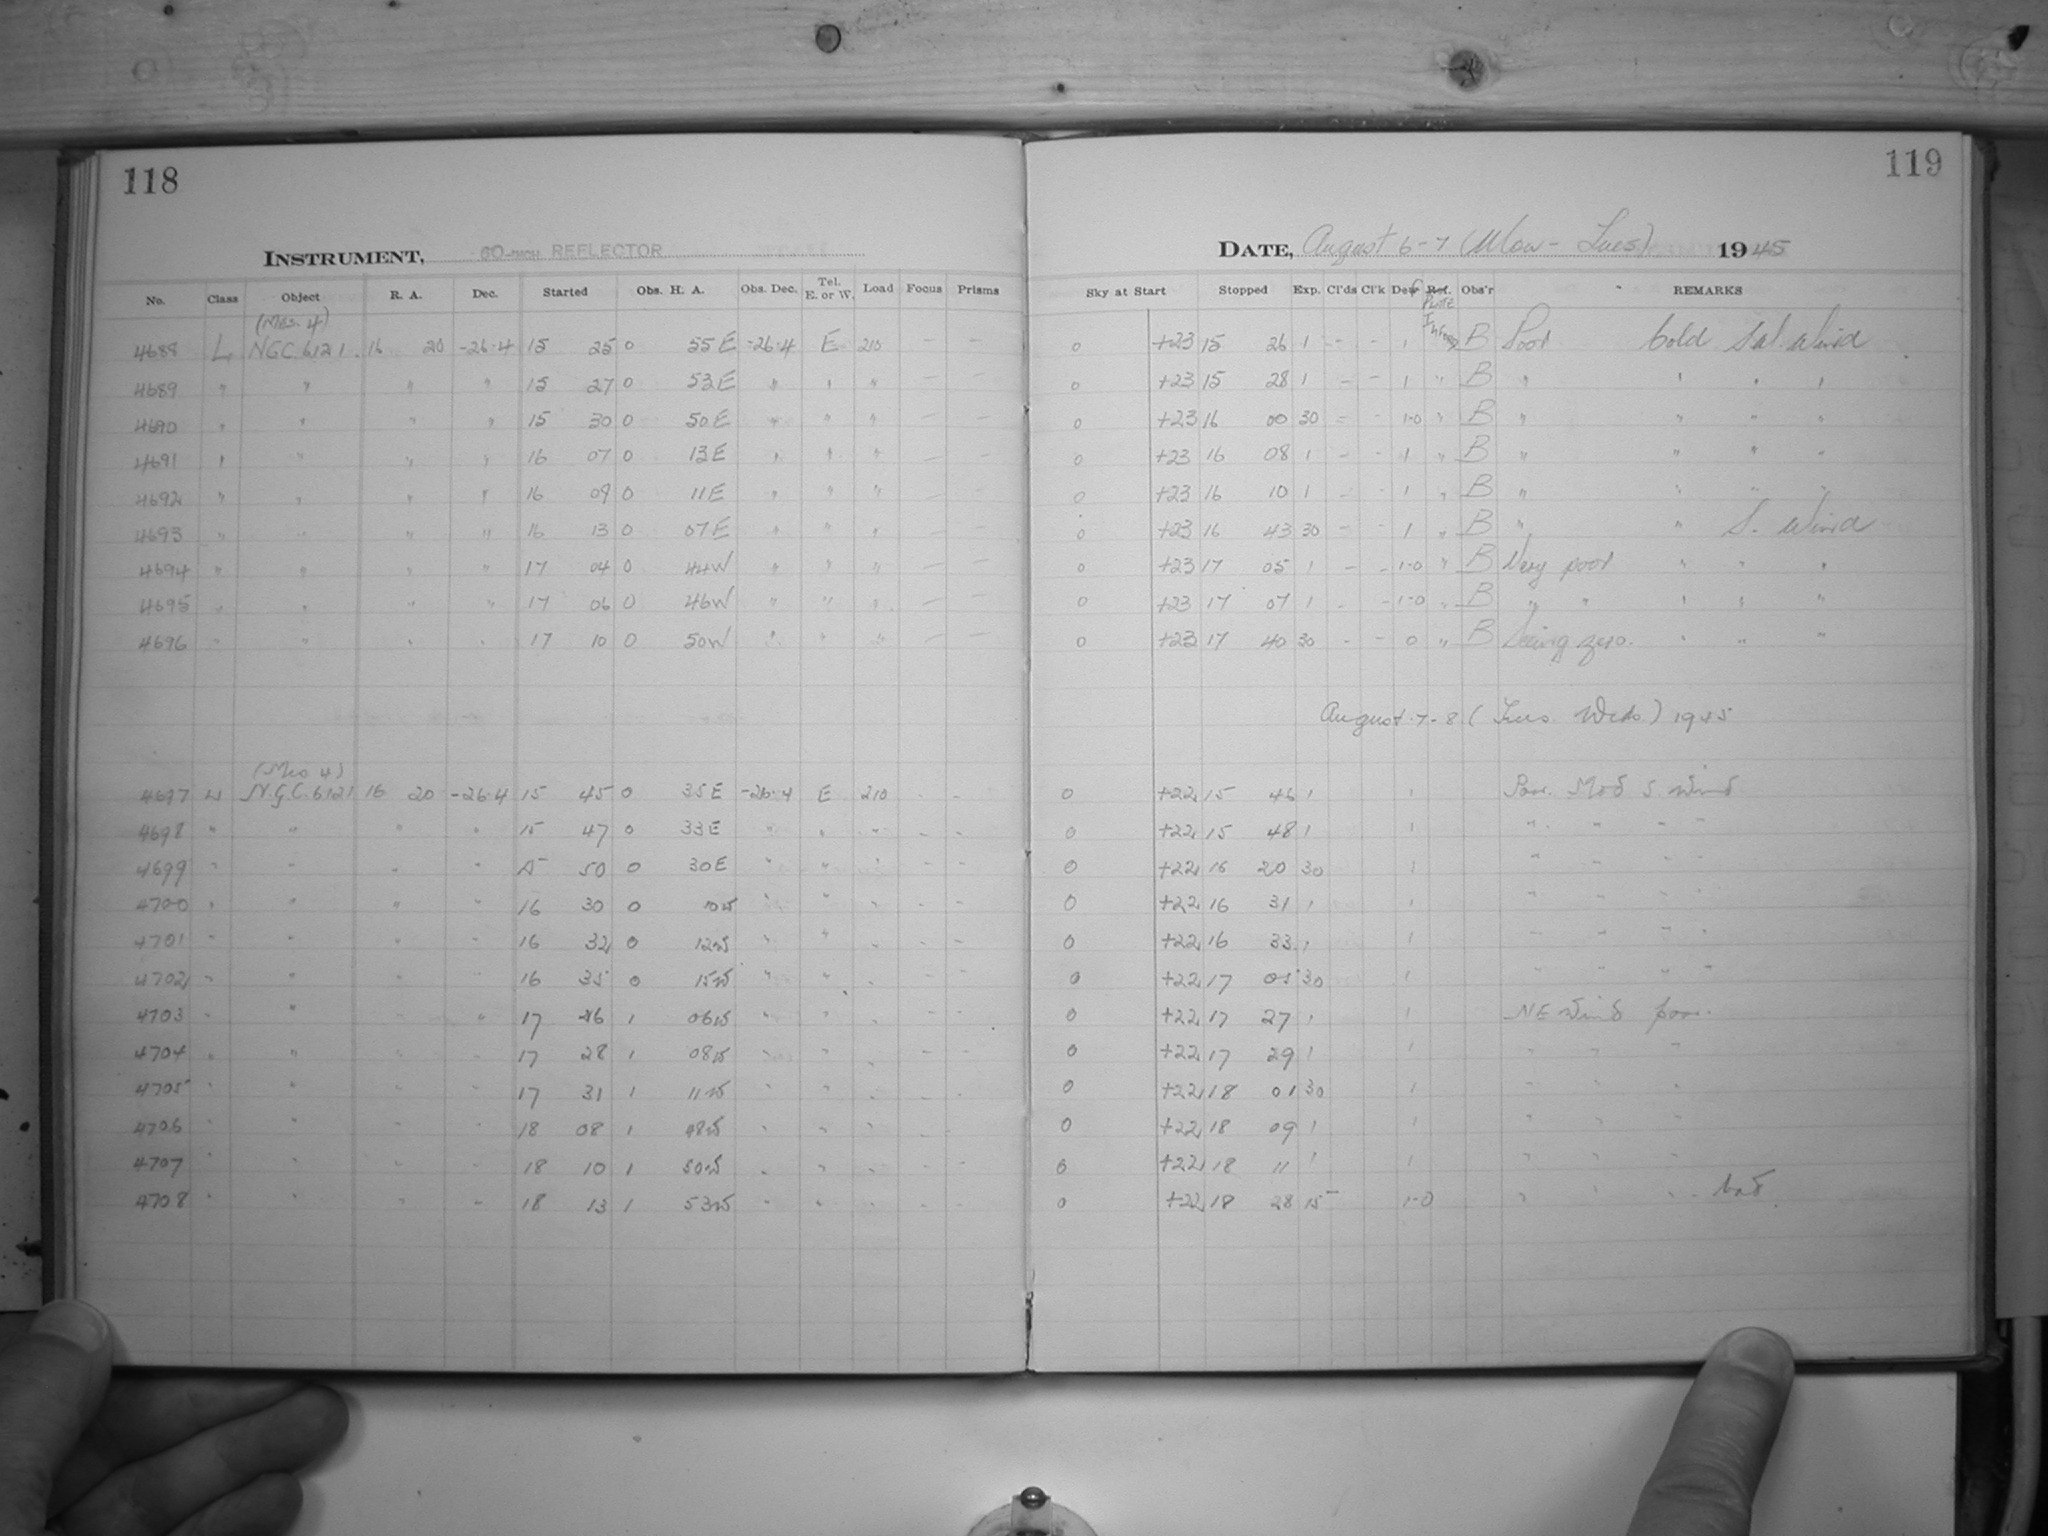 118
INSTRUMENT, 60-INCH REFLECTOR
No. Class Object R. A. Dec. Started Obs. H. A. Obs. Dec. Tel. E. or W. Load Focus Prisms
(Mes. 4)
4688 L NGC.6121. 16 20 -26.4 15 25 0 55 E -26.4 E 210 - -
4689 " " " " 15 27 0 53E " " " - -
4690 " " " " 15 30 0 50E " " " - -
4691 " " " " 16 07 0 13E " " " - -
4692 " " " " 16 09 0 11E " " " - -
4693 " " " " 16 13 0 07E " " " - -
4694 " " " " 17 04 0 44W " " " - -
4695 " " " " 17 06 0 46W " " " - -
4696 " " " " 17 10 0 50W " " " - -
(Mes 4)
4697 L N.G.C.6121 16 20 -26.4 15 45 0 35E -26.4 E 210 - -
4698 " " " " 15 47 0 33E " " " - -
4699 " " " " 15 50 0 30E " " " - -
4700 " " " " 16 30 0 10W " " " - -
4701 " " " " 16 32 0 12W " " " - -
4702 " " " " 16 35 0 15W " " " - -
4703 " " " " 17 26 1 06W " " " - -
4704 " " " " 17 28 1 08W " " " - -
4705 " " " " 17 31 1 11W " " " - -
4706 " " " " 18 08 1 48W " " " - -
4707 " " " " 18 10 1 50W " " " - -
4708 " " " " 18 13 1 53W " " " - -
119
DATE, August 6-7 (Mon - Tues) 1945
Sky at Start Stopped Exp. Cl'ds Cl'k Dew Ref. Obs'r REMARKS
0 +23 15 26 1 - - 1 B Poor Cold Sml. Wind
0 +23 15 28 1 - - 1 " B " " " "
0 +23 16 00 30 - - 1-0 " B " " " "
0 +23 16 08 1 - - 1 " B " " " "
0 +23 16 10 1 - - 1 " B " " " "
0 +23 16 43 30 - - 1 " B " " S. Wind
0 +23 17 05 1 - - 1-0 " B Very poor " " "
0 +23 17 07 1 - - 1-0 " B " " " " "
0 +23 17 40 30 - - 0 " B Seeing zero. " " "
August 7-8 (Tues. Weds.) 1945
0 +22 15 46 1 1 Poor. Mod S. Wind
0 +22 15 48 1 1 " " " "
0 +22 16 20 30 1 " " " "
0 +22 16 31 1 1 " " " "
0 +22 16 33 1 1 " " " "
0 +22 17 05 30 1 " " " "
0 +22 17 27 1 1 NE Wind poor.
0 +22 17 29 1 1 " " "
0 +22 18 01 30 1 " " "
0 +22 18 09 1 1 " " "
0 +22 18 11 1 1 " " "
0 +22 18 28 15 1-0 " " " bad